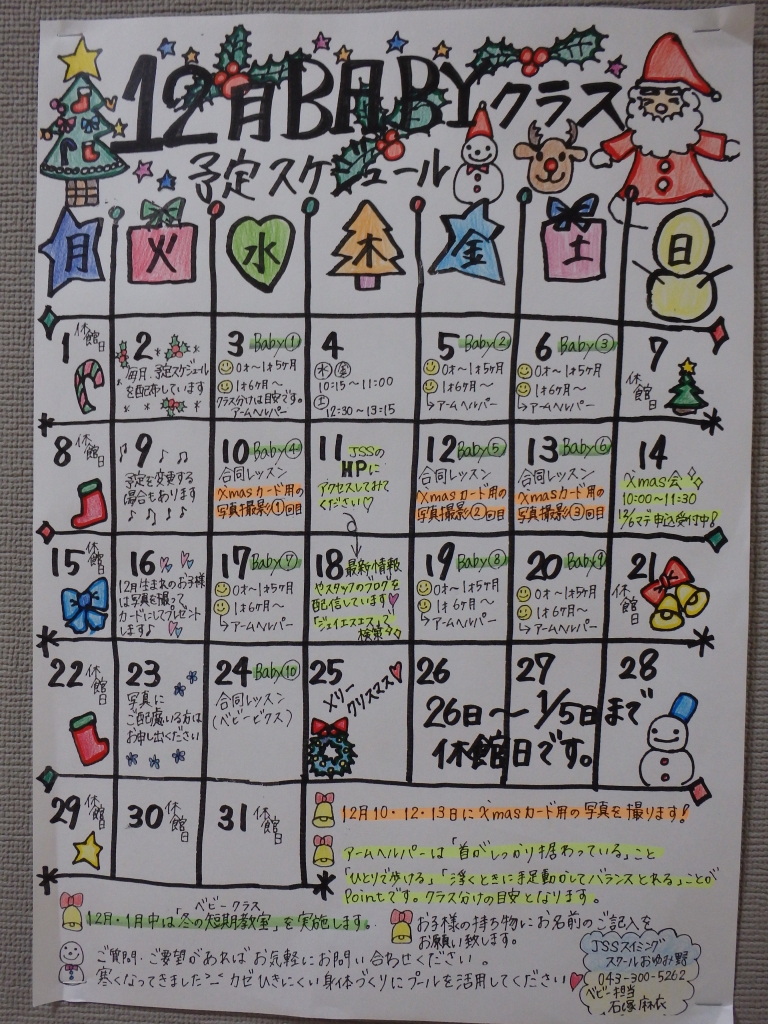 12月BABYクラス
予定スケジュール
月 火 水 木 金 土 日
1 休館日
2
毎月、予定スケジュール
を配布しています
3 Baby①
0才～1才5ヶ月
1才6ヶ月～
クラス分けは目安です。
アームヘルパー
4
水金
10:15～11:00
土
12:30～13:15
5 Baby②
0才～1才5ヶ月
1才6ヶ月～
→アームヘルパー
6 Baby③
0才～1才5ヶ月
1才6ヶ月～
→アームヘルパー
7
休館日
8 休館日
9
予定を変更する
場合もあります
10 Baby④
合同レッスン
Xmasカード用の
写真撮影①回目
11 JSSの
HPに
アクセスしてみて
ください♡
12 Baby⑤
合同レッスン
Xmasカード用の
写真撮影②回目
13 Baby⑥
合同レッスン
Xmasカード用の
写真撮影③回目
14
Xmas会
10:00～11:30
12/6マデ申込受付中!
15 休館日
16
12月生まれのお子様
は写真を撮って
カードにしてプレゼント
します♪
17 Baby⑦
0才～1才5ヶ月
1才6ヶ月～
→アームヘルパー
18 最新情報
やスタッフのブログを
配信しています♥
「ジェイエスエス」で
検索
19 Baby⑧
0才～1才5ヶ月
1才6ヶ月～
→アームヘルパー
20 Baby⑨
0才～1才5ヶ月
1才6ヶ月～
→アームヘルパー
21
休館日
22 休館日
23
写真に
ご配慮いる方は
お申し出ください
24 Baby⑩
合同レッスン
(ベビービクス)
25
メリー
クリスマス♥
26 27 28
26日～1/5日まで
休館日です。
29 休館日
30 休館日
31 休館日
12月10・12・13日にXmasカード用の写真を撮ります!
アームヘルパーは「首がしっかり据わっている」こと
「ひとりで歩ける」「浮くときに手足動かしてバランスとれる」ことが
Pointです。クラス分けの目安となります。
ベビークラス
12月・1月中は「冬の短期教室」を実施します。
お子様の持ち物にお名前のご記入を
お願い致します。
ご質問・ご要望があればお気軽にお問い合わせください。
寒くなってきました カゼひきにくい身体づくりにプールを活用してください♥
JSSスイミング
スクールおゆみ野
043-300-5262
ベビー担当
石塚麻衣